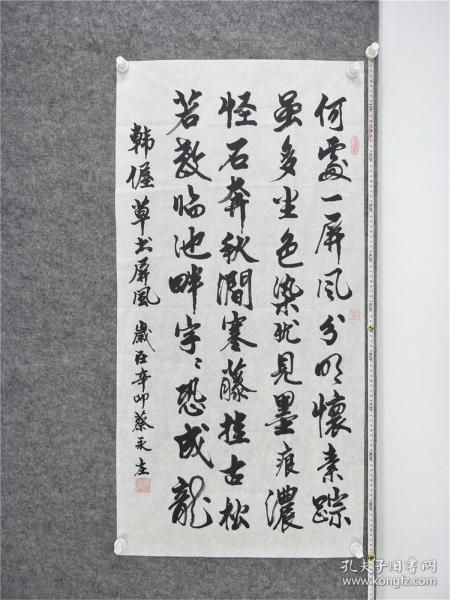 何處一屏风分明懷素踪
虽多尘色染犹見墨痕濃
怪石奔秋澗寒藤挂古松
若教临池畔字〻恐成龍
韩偓草书屏風 歲在辛卯蔡永左
孔夫子旧书网
www.kongfz.com